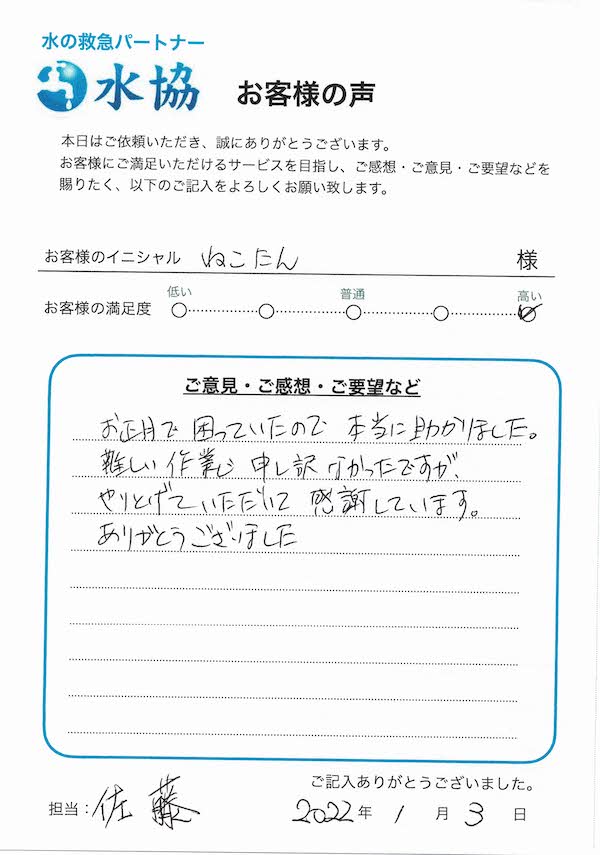 水の救急パートナー
水協 お客様の声
本日はご依頼いただき、誠にありがとうございます。
お客様にご満足いただけるサービスを目指し、ご感想・ご意見・ご要望などを
賜りたく、以下のご記入をよろしくお願い致します。
お客様のイニシャル ねこたん 様
低い 普通 高い
お客様の満足度
ご意見・ご感想・ご要望など
お正月で困っていたので 本当に助かりました。
難しい作業で 申し訳なかったですが、
やりとげていただいて 感謝しています。
ありがとうございました
ご記入ありがとうございました。
担当：佐藤 2022年 1月 3日